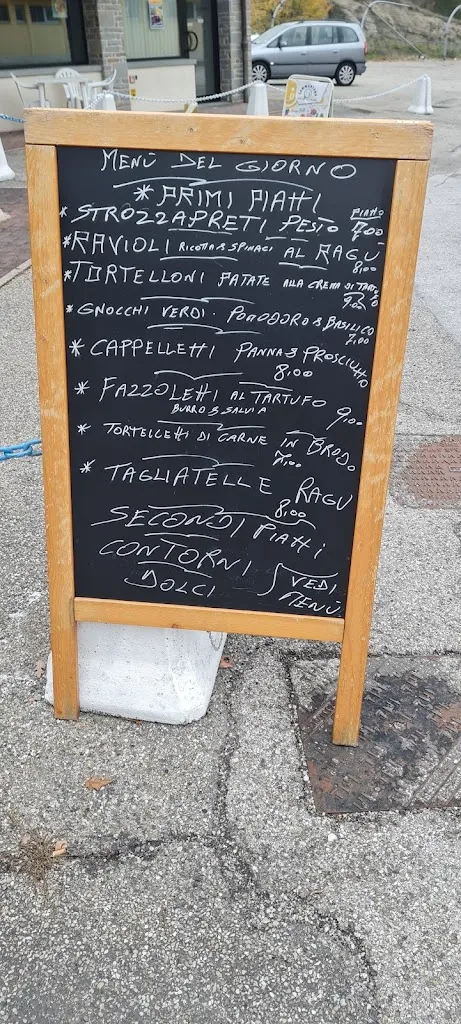 MENÙ DEL GIORNO
* PRIMI PIATTI
* STROZZAPRETI PESTO PIATTO 7,00
* RAVIOLI RICOTTA & SPINACI AL RAGÙ 8,00
* TORTELLONI PATATE ALLA CREMA DI TARTUFO 9,00
* GNOCCHI VERDI · POMODORO & BASILICO 7,00
* CAPPELLETTI PANNA & PROSCIUTTO
8,00
* FAZZOLETTI AL TARTUFO 9,00
BURRO & SALVIA
* TORTELLETTI DI CARNE IN BRODO
7,00
* TAGLIATELLE RAGÙ
8,00
SECONDI PIATTI
CONTORNI
DOLCI VEDI
MENÙ